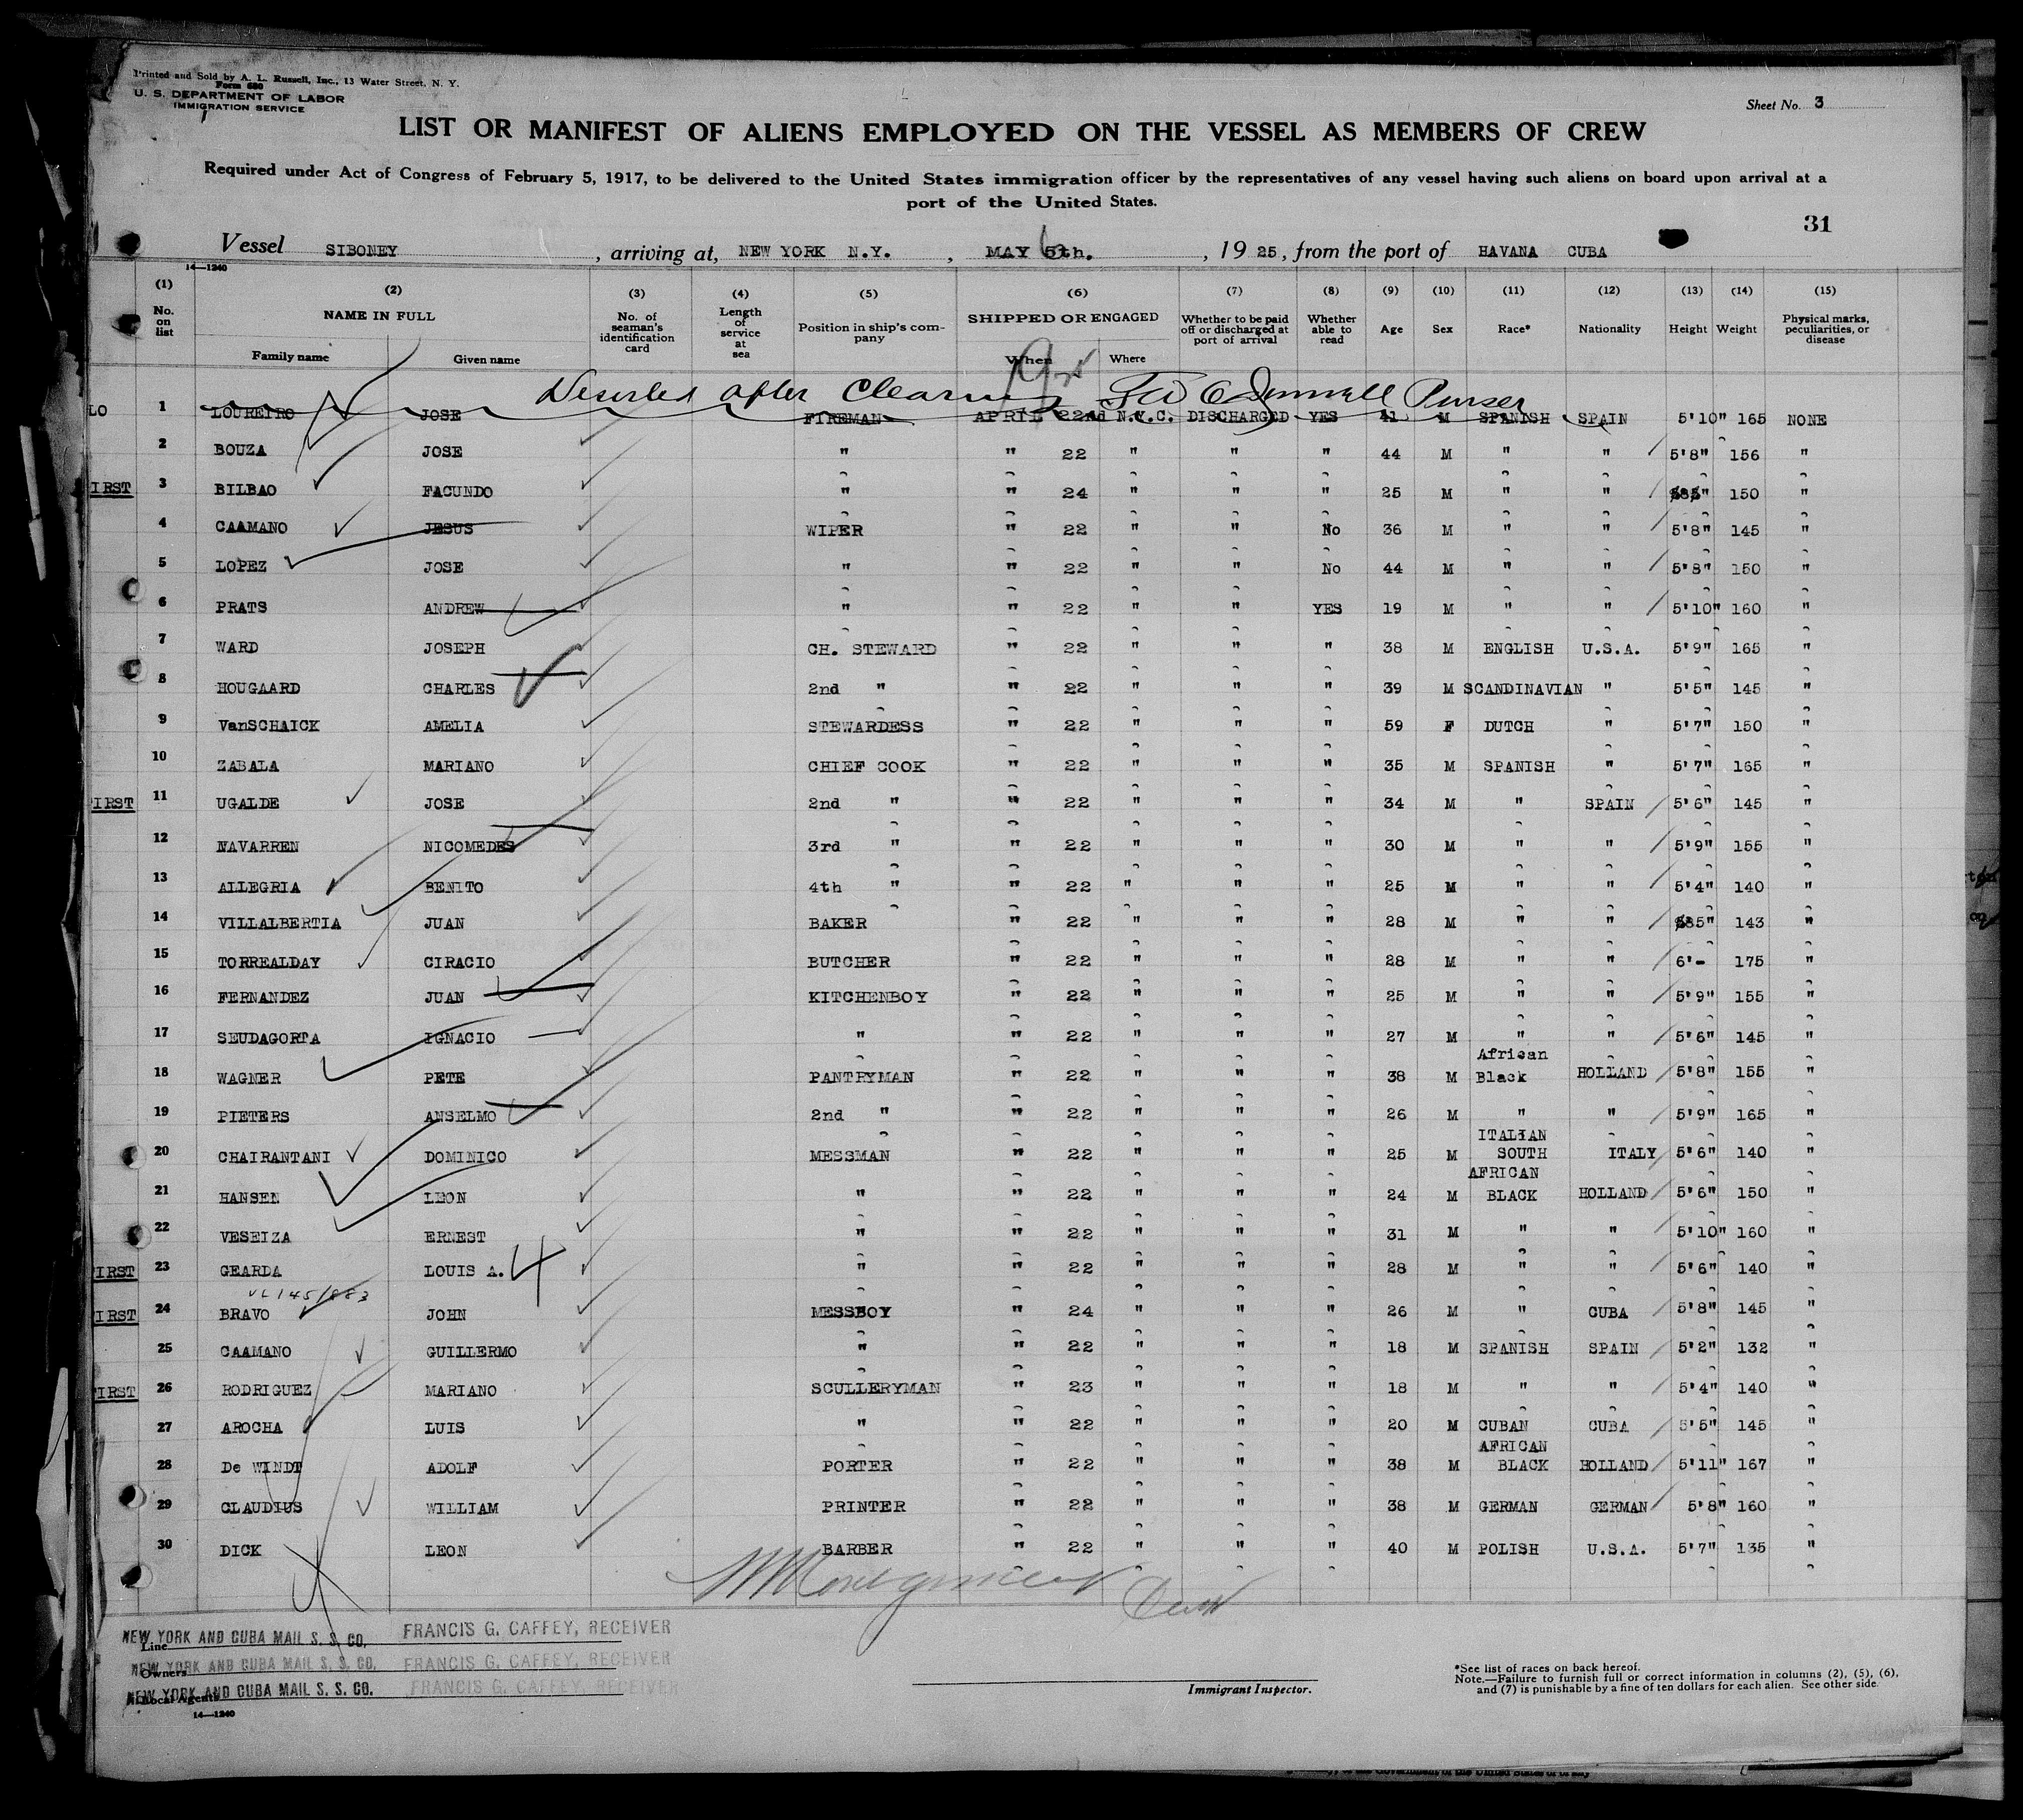 Printed and Sold by A. L. Russell, Inc., 13 Water Street, N. Y.
Form 680
U. S. DEPARTMENT OF LABOR
IMMIGRATION SERVICE
Sheet No. 3
LIST OR MANIFEST OF ALIENS EMPLOYED ON THE VESSEL AS MEMBERS OF CREW
Required under Act of Congress of February 5, 1917, to be delivered to the United States immigration officer by the representatives of any vessel having such aliens on board upon arrival at a
port of the United States.
31
Vessel SIBONEY, arriving at, NEW YORK N.Y., MAY 6th., 1925, from the port of HAVANA CUBA
14—1240
(1) No. on list (2) NAME IN FULL Family name Given name (3) No. of seaman's identification card (4) Length of service at sea (5) Position in ship's company (6) SHIPPED OR ENGAGED When Where (7) Whether to be paid off or discharged at port of arrival (8) Whether able to read (9) Age (10) Sex (11) Race* (12) Nationality (13) Height (14) Weight (15) Physical marks, peculiarities, or disease
Deserted after Clearing Purser
LO 1 LOUREIRO JOSE FIREMAN APRIL 22nd N.Y.C. DISCHARGED YES 41 M SPANISH SPAIN 5'10" 165 NONE
2 BOUZA JOSE " " 22 " " " 44 M " " 5'8" 156 "
IRST 3 BILBAO FACUNDO " " 24 " " " 25 M " " 150 "
4 CAAMANO JESUS WIPER " 22 " " No 36 M " " 5'8" 145 "
5 LOPEZ JOSE " " 22 " " No 44 M " " 5'8" 150 "
6 PRATS ANDREW " " 22 " " YES 19 M " " 5'10" 160 "
7 WARD JOSEPH CH. STEWARD " 22 " " " 38 M ENGLISH U.S.A. 5'9" 165 "
8 HOUGAARD CHARLES 2nd " " 22 " " " 39 M SCANDINAVIAN " 5'5" 145 "
9 VanSCHAICK AMELIA STEWARDESS " 22 " " " 59 F DUTCH " 5'7" 150 "
10 ZABALA MARIANO CHIEF COOK " 22 " " " 35 M SPANISH " 5'7" 165 "
IRST 11 UGALDE JOSE 2nd " " 22 " " " 34 M " SPAIN 5'6" 145 "
12 NAVARREN NICOMEDES 3rd " " 22 " " " 30 M " " 5'9" 155 "
13 ALLEGRIA BENITO 4th " " 22 " " " 25 M " " 5'4" 140 "
14 VILLALBERTIA JUAN BAKER " 22 " " " 28 M " " 143 "
15 TORREALDAY CIRACIO BUTCHER " 22 " " " 28 M " " 6'- 175 "
16 FERNANDEZ JUAN KITCHENBOY " 22 " " " 25 M " " 5'9" 155 "
17 SEUDAGORTA IGNACIO " " 22 " " " 27 M " " 5'6" 145 "
18 WAGNER PETE PANTRYMAN " 22 " " " 38 M African Black HOLLAND 5'8" 155 "
19 PIETERS ANSELMO 2nd " " 22 " " " 26 M " " 5'9" 165 "
20 CHAIRANTANI DOMINICO MESSMAN " 22 " " " 25 M ITALIAN SOUTH ITALY 5'6" 140 "
21 HANSEN LEON " " 22 " " " 24 M AFRICAN BLACK HOLLAND 5'6" 150 "
22 VESEIZA ERNEST " " 22 " " " 31 M " " 5'10" 160 "
IRST 23 GEARDA LOUIS A. " " 22 " " " 28 M " " 5'6" 140 "
IRST 24 BRAVO JOHN MESSBOY " 24 " " " 26 M " CUBA 5'8" 145 "
25 CAAMANO GUILLERMO " " 22 " " " 18 M SPANISH SPAIN 5'2" 132 "
IRST 26 RODRIGUEZ MARIANO SCULLERYMAN " 23 " " " 18 M " " 5'4" 140 "
27 AROCHA LUIS " " 22 " " " 20 M CUBAN CUBA 5'5" 145 "
28 De WINDT ADOLF PORTER " 22 " " " 38 M AFRICAN BLACK HOLLAND 5'11" 167 "
29 CLAUDIUS WILLIAM PRINTER " 22 " " " 38 M GERMAN GERMAN 5'8" 160 "
30 DICK LEON BARBER " 22 " " " 40 M POLISH U.S.A. 5'7" 135 "
Line NEW YORK AND CUBA MAIL S. S. CO. FRANCIS G. CAFFEY, RECEIVER
Owners NEW YORK AND CUBA MAIL S. S. CO. FRANCIS G. CAFFEY, RECEIVER
Local Agents NEW YORK AND CUBA MAIL S. S. CO. FRANCIS G. CAFFEY, RECEIVER
14—1240
Immigrant Inspector.
*See list of races on back hereof.
Note.—Failure to furnish full or correct information in columns (2), (5), (6),
and (7) is punishable by a fine of ten dollars for each alien. See other side.